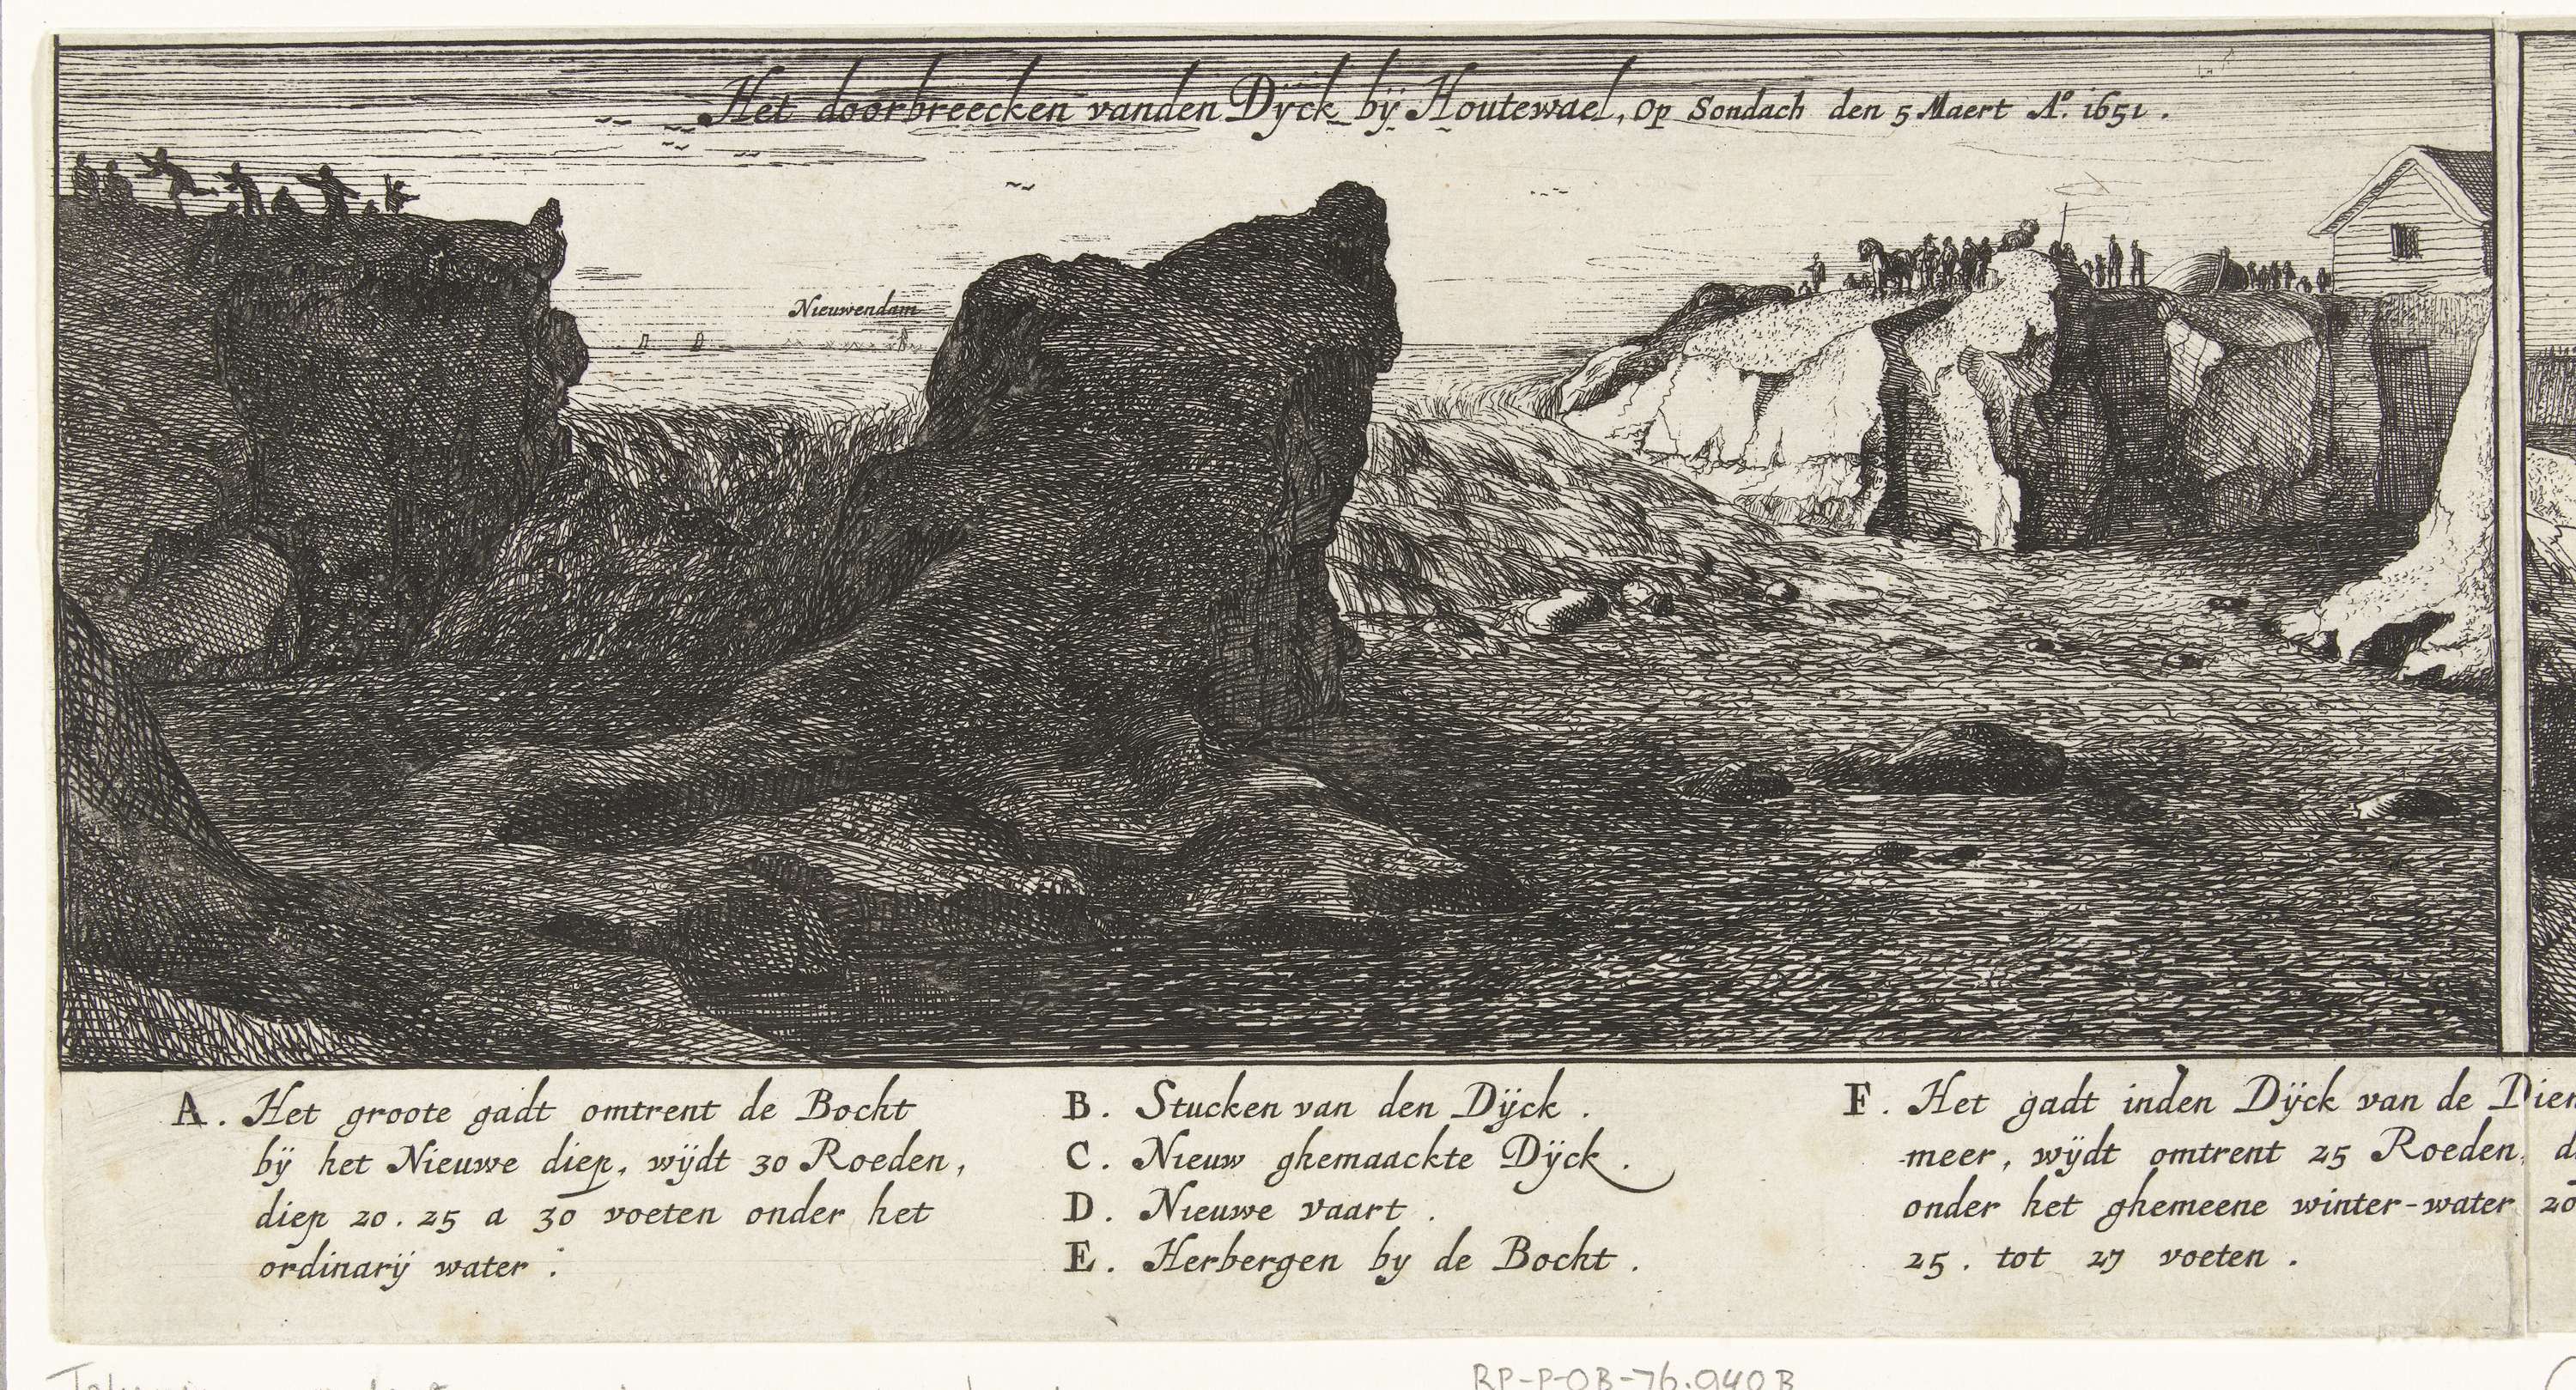 Het doorbreecken vanden Dyck bÿ Houtewael, Op Sondach den 5 Maert Aº. 1651.
Nieuwendam
A. Het groote gadt omtrent de Bocht
bÿ het Nieuwe diep, wÿdt 30 Roeden,
diep 20. 25 a 30 voeten onder het
ordinarÿ water.
B. Stucken van den Dÿck.
C. Nieuw ghemaackte Dÿck.
D. Nieuwe vaart.
E. Herbergen by de Bocht.
F. Het gadt inden Dÿck van de Diem
meer, wÿdt omtrent 25 Roeden,
onder het ghemeene winter-water 20
25. tot 27 voeten.
RP-P-OB-76.040B